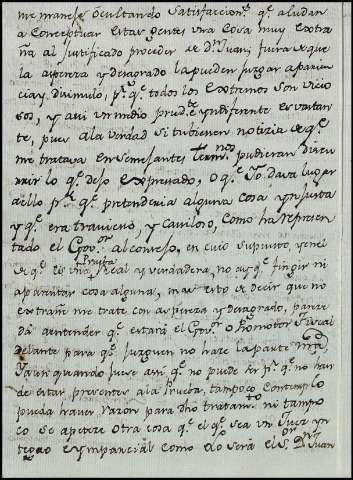 me manese ocultando satisfaccion.s q.e aludan
a conceptuar estas gentes una cosa muy extra
ña al justificado proceder de dn Juan, fuera de que
la aspereza y desagrado la pueden juzgar aparien
cia y disimulo, p.r q.e todos los extremos son vicio
sos, y assi un medio prud.te e yndiferente es vastan
te, pues a la verdad si tubiesen notizia de q.e
me tratava en semejantes term.nos pudieran discu
rrir lo q.e dejo expresado, o q.e Yo dava lugar
a ello p.r q.e pretenderia alguna cosa ynjusta
y q.e era travieso, y caviloso, como ha represen
tado el Gov.or al consejo, en cuio supuesto, y en el
de q.e es una Prueba Real y verdadera, no ay q.e fingir ni
aparentar cosa alguna, mas esto de decir que no
extrañe me trate con aspereza y desagrado, parece
da a entender q.e estará el Gov.or o Promotor Fiscal
delante para q.e juzguen no hace la parte mia,
Ya un quando fuese assi q.e no puede ser p.r q.e no han
de estar presentes a la Prueba, tampoco contemplo
pueda haver razon para dho tratam.to ni tampo
co se apetece otra cosa q.e el q.e sea un Juez yn
tegro e ymparcial como lo será el S.or D.n Juan